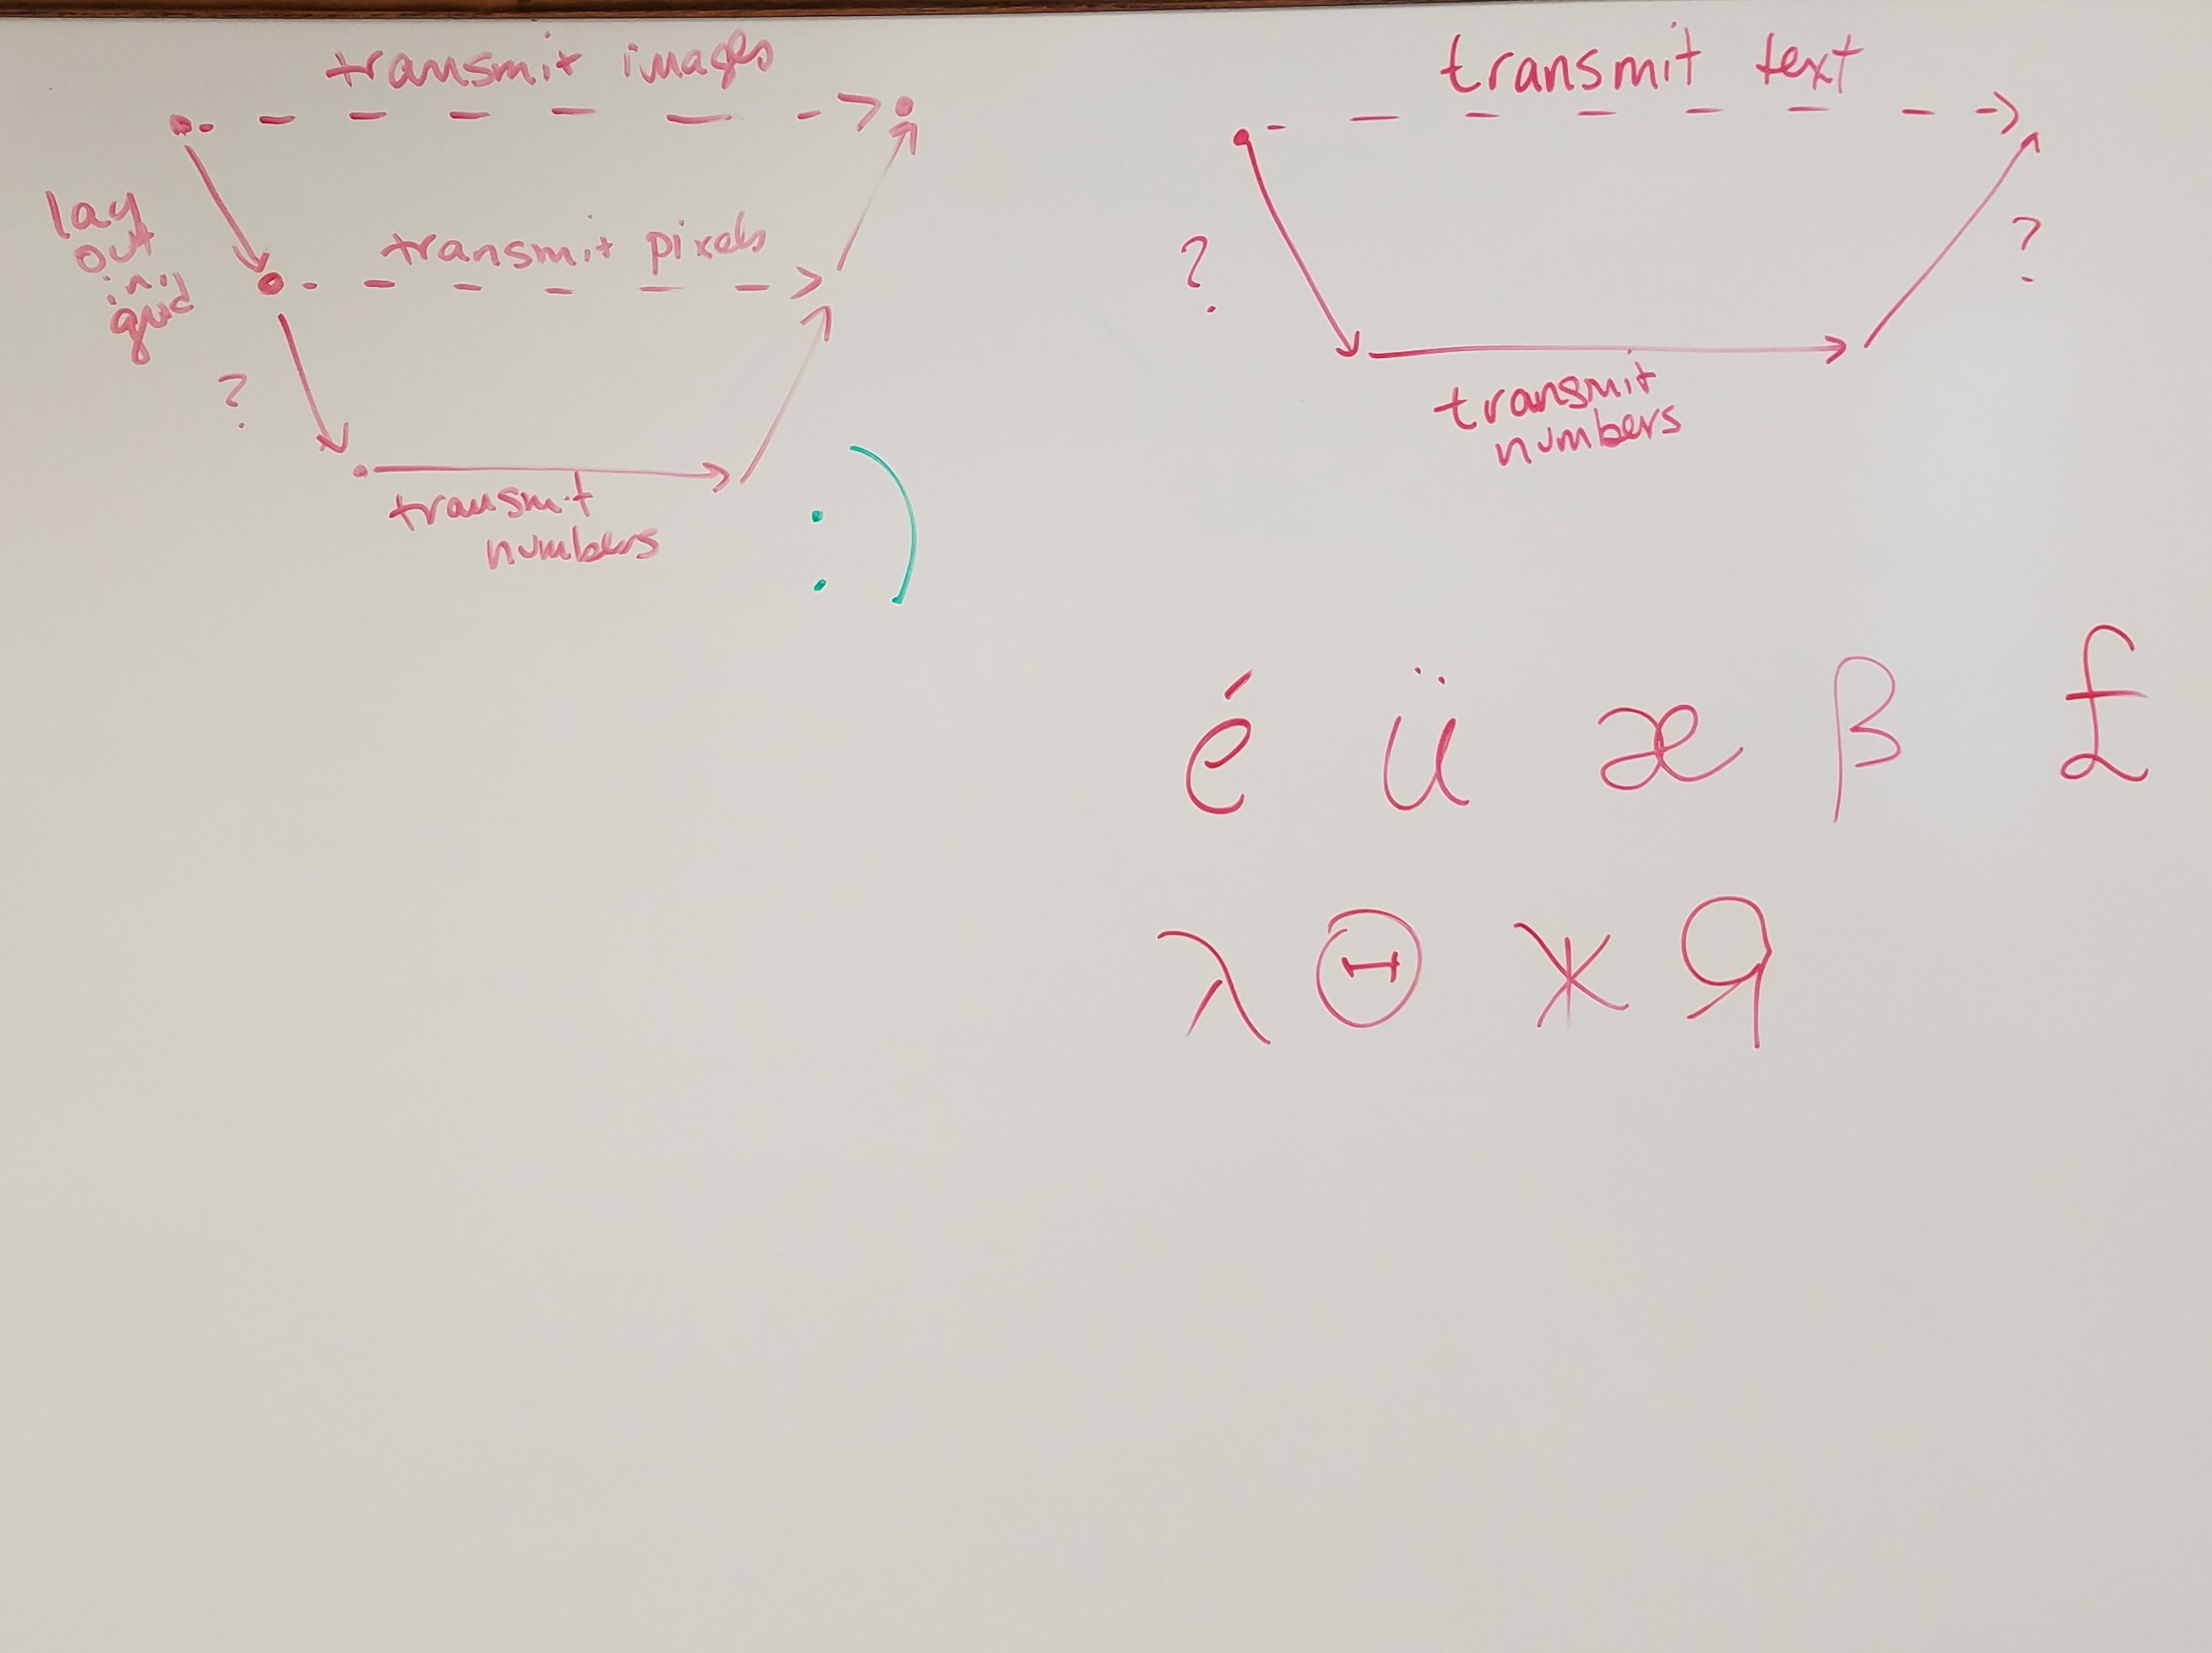 transmit images
lay
out
in
grid
transmit pixels
?
transmit
numbers
:)
transmit text
?
?
transmit
numbers
é ü æ β £
λ Θ ж Я